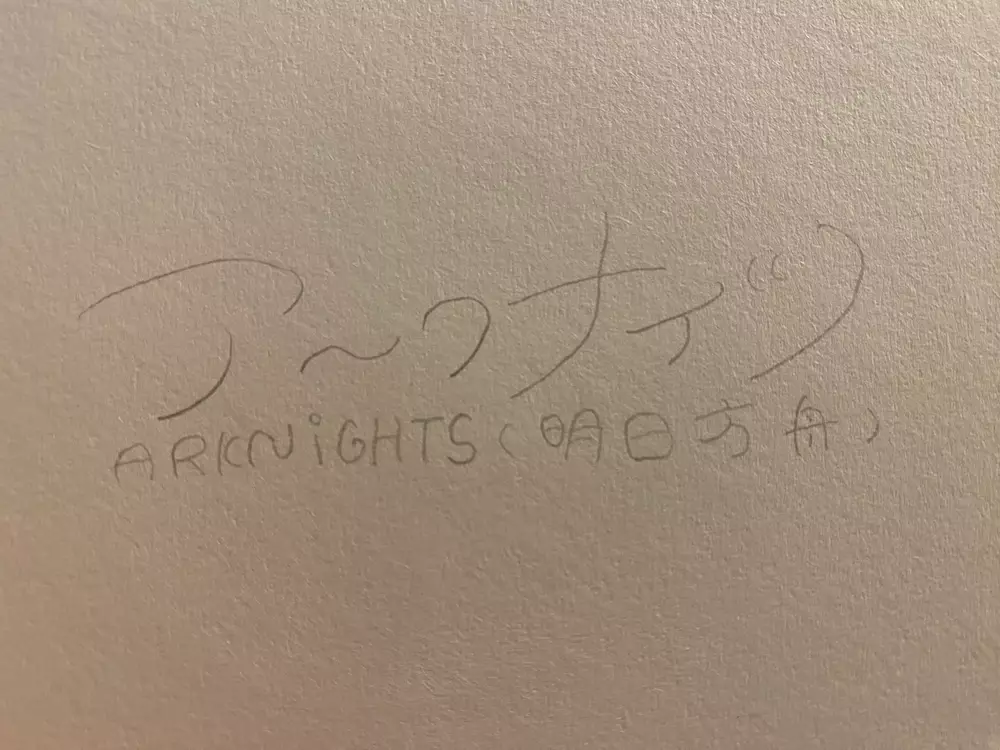 アークナイツ
ARKNiGHTS(明日方舟)